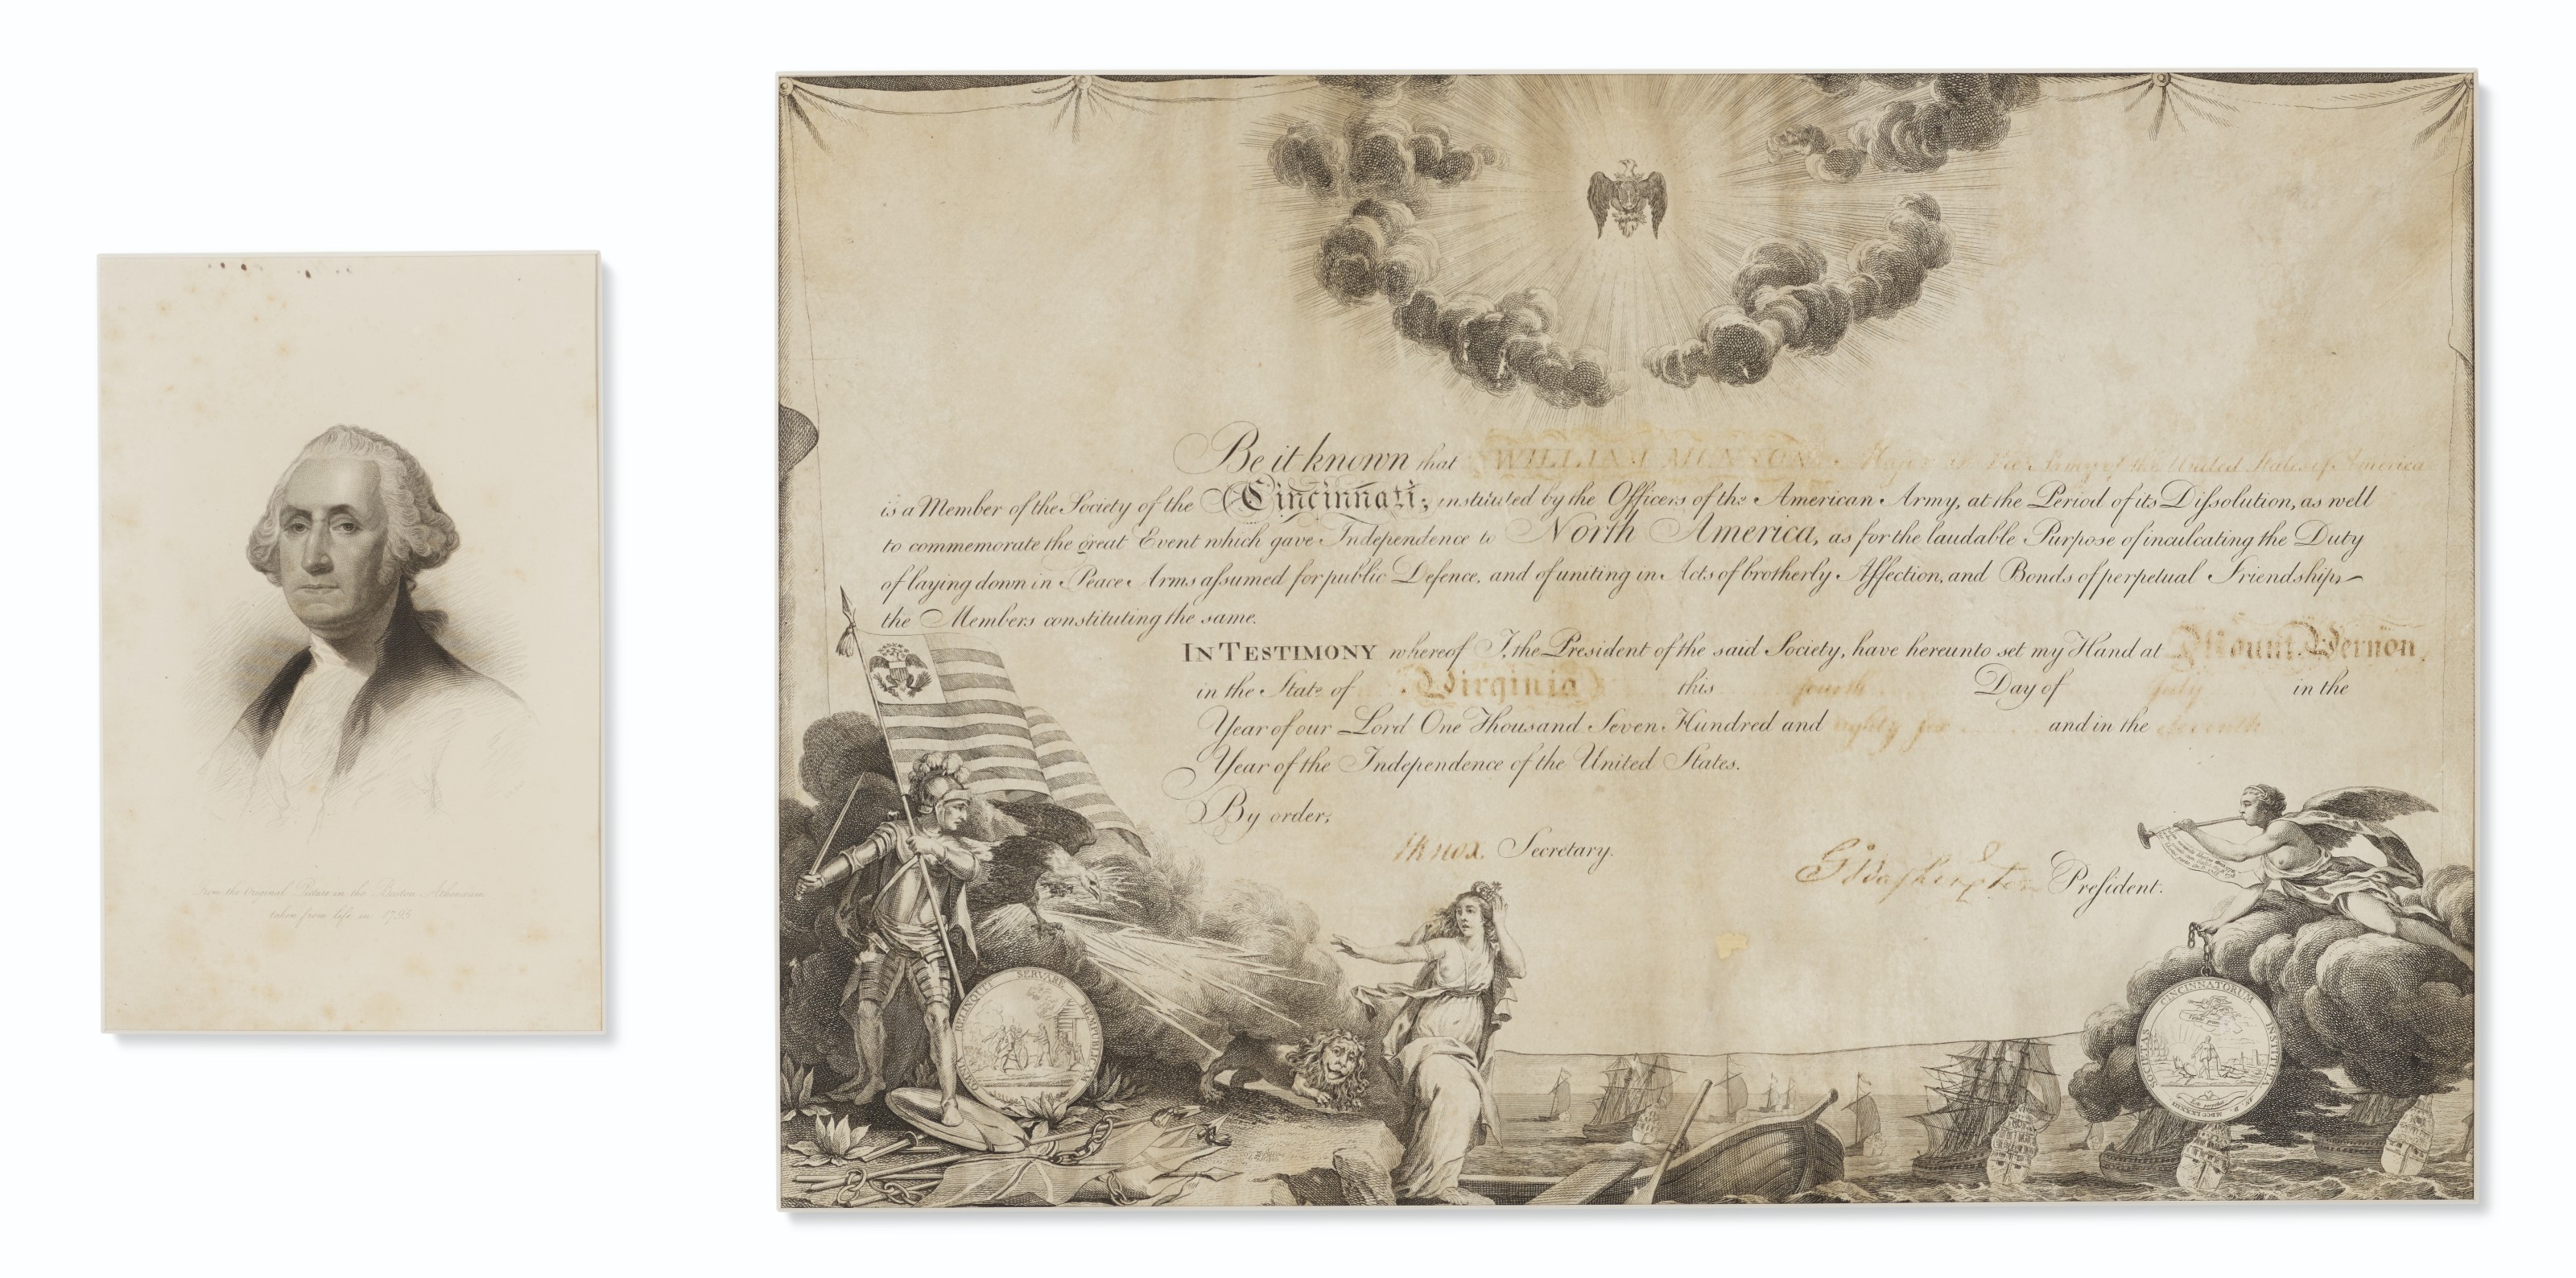 From the Original Picture in the Boston Athenæum
taken from life in 1795
Be it known that WILLIAM Major in the Army of the United States of America
is a Member of the Society of the Cincinnati; instituted by the Officers of the American Army, at the Period of its Dissolution, as well
to commemorate the great Event which gave Independence to North America, as for the laudable Purpose of inculcating the Duty
of laying down in Peace Arms assumed for public Defence, and of uniting in Acts of brotherly Affection, and Bonds of perpetual Friendship,
the Members constituting the same.
IN TESTIMONY whereof I, the President of the said Society, have hereunto set my Hand at Mount Vernon
in the State of Virginia this fourth Day of July in the
Year of our Lord One Thousand Seven Hundred and eighty and in the
Year of the Independence of the United States.
By order,
HKnox Secretary.
GWashington President.
OMNIA RELINQUIT SERVARE REMPUBLICAM
SOCIETAS CINCINNATORUM INSTITUTA A. D. MDCCLXXXIII